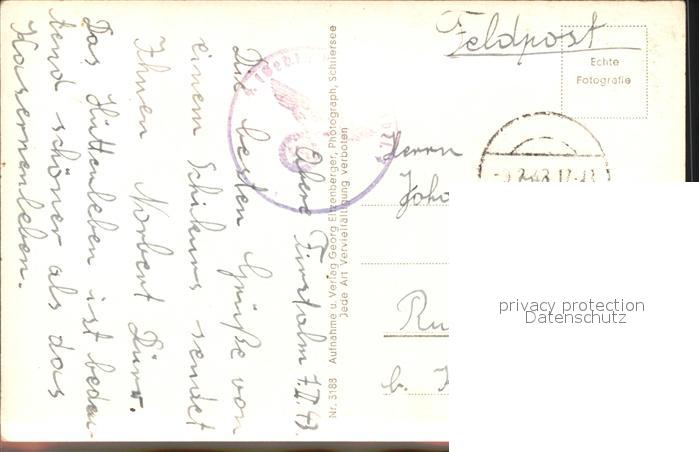 Feldpost
Echte
Fotografie
Obere Firstalm 7.II.43.
Die besten Grüße von
einem Schikurs sendet
Ihnen Norbert Dürr.
Das Hüttenleben ist bedeu-
tend schöner als das
Kasernenleben.
Nr. 3188 Aufnahme u. Verlag Georg Eitzenberger, Photograph, Schliersee
Jede Art Vervielfältigung verboten
Herrn
Joh
Ru
b.
privacy protection
Datenschutz